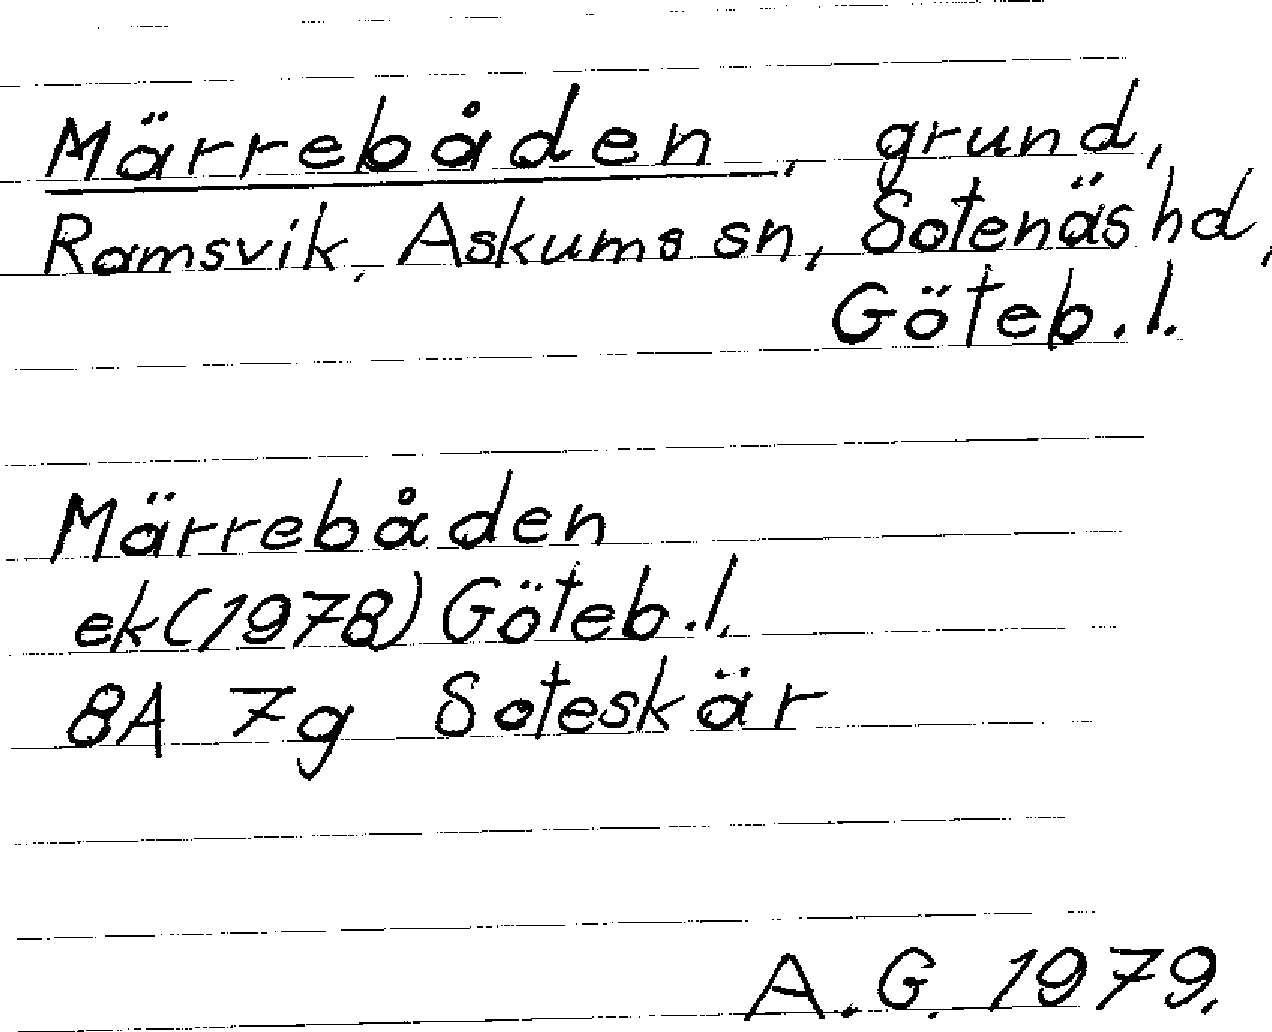 Märrebåden, grund,
Ramsvik, Askums sn, Sotenäs hd,
Göteb.l.
Märrebåden
ek(1978) Göteb.l.
8A 7g Soteskär
A.G. 1979.